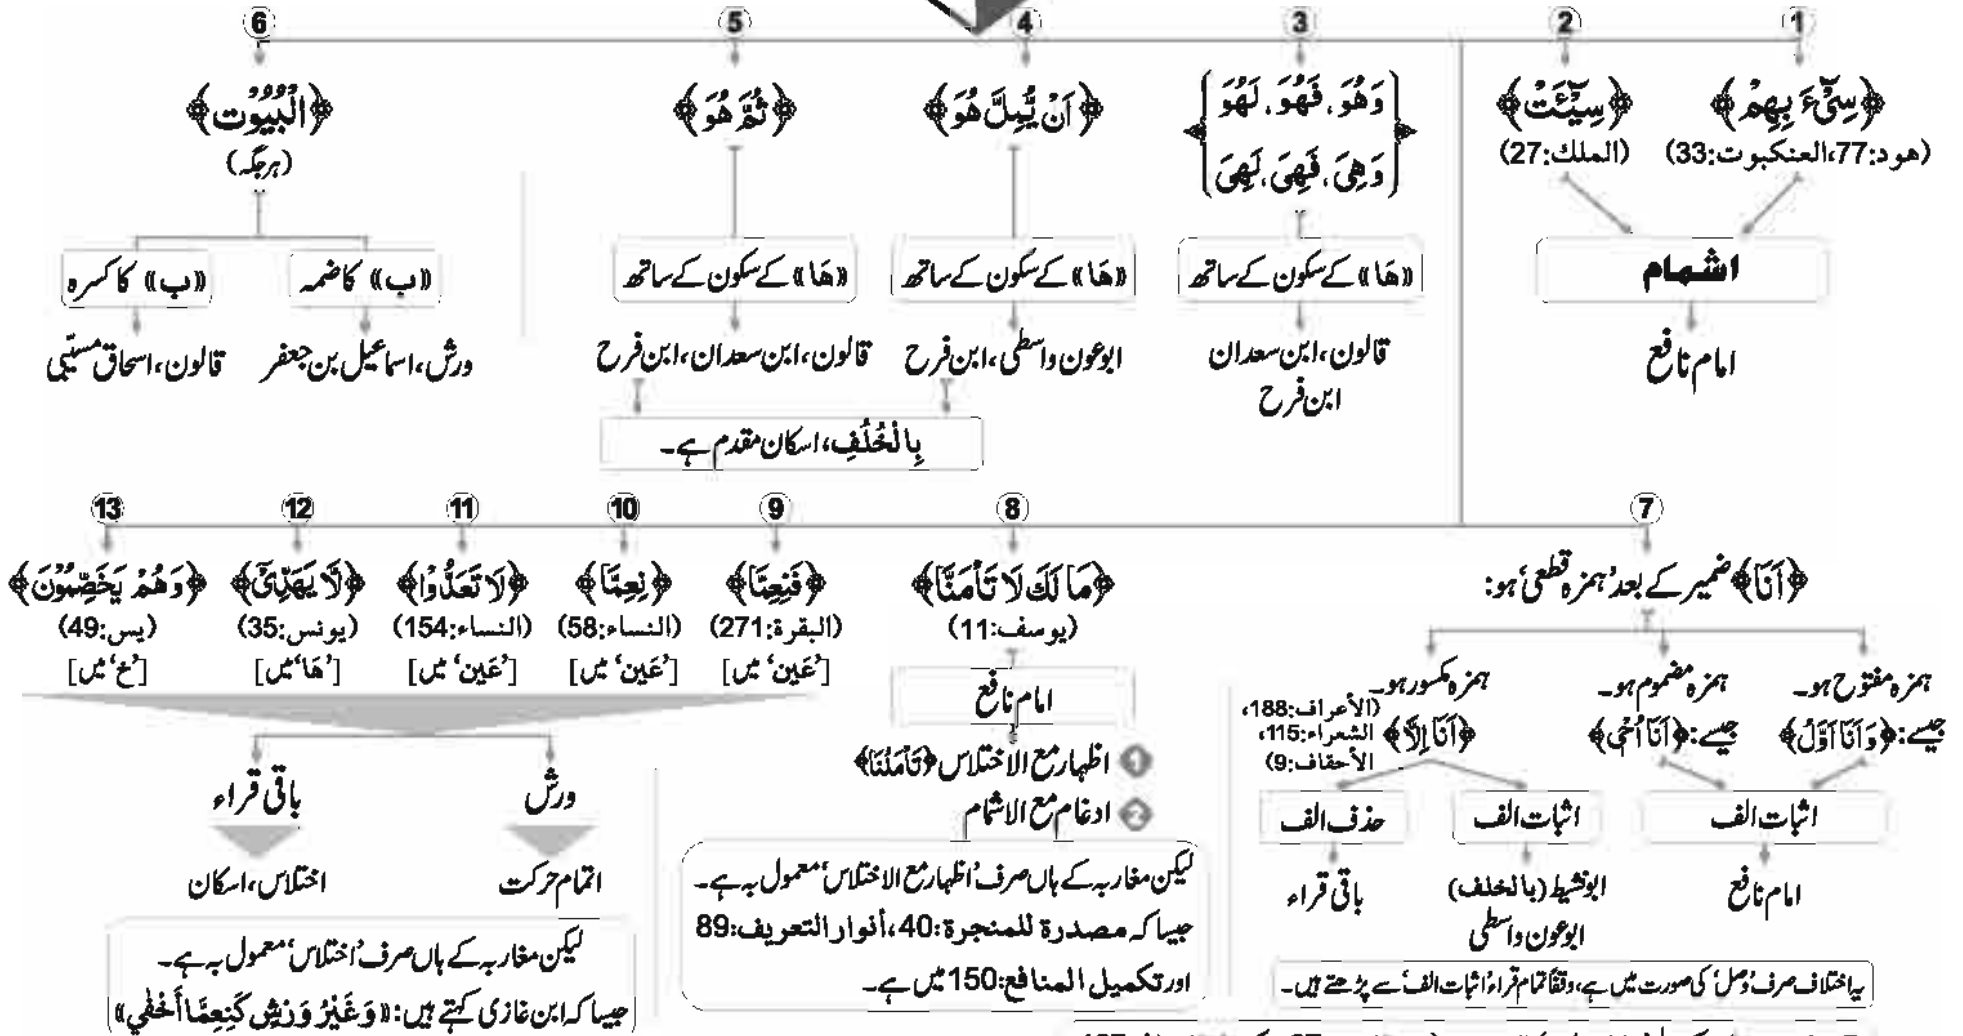 1
2
3
4
5
6
﴿سِيْٓءَ بِهِمْ﴾
(هود:77،العنكبوت:33)
﴿سِيْٓئَتْ﴾
(الملك:27)
اشمام
امام نافع
وَهُوَ، فَهُوَ، لَهُوَ
وَهِيَ، فَهِيَ، لَهِيَ
«هَا» کے سکون کے ساتھ
قالون، ابن سعدان
ابن فرح
﴿اَنْ يُّمِلَّ هُوَ﴾
«هَا» کے سکون کے ساتھ
ابوعون واسطی، ابن فرح
﴿ثُمَّ هُوَ﴾
«هَا» کے سکون کے ساتھ
قالون، ابن سعدان، ابن فرح
بِالْخُلْفِ، اسکان مقدم ہے۔
﴿الْبُيُوْت﴾
(ہر جگہ)
«ب» کا ضمہ
ورش، اسماعیل بن جعفر
«ب» کا کسرہ
قالون، اسحاق مسیّبی
7
8
9
10
11
12
13
﴿اَنَا﴾ ضمیر کے بعد 'ہمزہ قطعی' ہو:
ہمزہ مفتوح ہو۔
جیسے: ﴿وَاَنَا اَوَّلُ﴾
ہمزہ مضموم ہو۔
جیسے: ﴿اَنَا اُحْيٖ﴾
اثبات الف
امام نافع
ہمزہ مکسور ہو۔
﴿اَنَا اِلَّا﴾ (الأعراف:188،
الشعراء:115،
الأحقاف:9)
اثبات الف
ابونشیط (بالخلف)
ابوعون واسطی
حذف الف
باقی قراء
یہ اختلاف صرف 'وصل' کی صورت میں ہے، وقفاً تمام قراء 'اثبات الف' سے پڑھتے ہیں۔
﴿مَا لَكَ لَا تَأْمَنَّا﴾
(يوسف:11)
امام نافع
1 اظہار مع الاختلاس ﴿تَأْمَنُنَا﴾
2 ادغام مع الاشمام
لیکن مغاربہ کے ہاں صرف 'اظہار مع الاختلاس' معمول بہ ہے۔
جیسا کہ مصدرة للمنجرة:40، أنوار التعريف:89
اور تكميل المنافع:150 میں ہے۔
﴿فَنِعِمَّا﴾
(البقرة:271)
['عَين' میں]
﴿نِعِمَّا﴾
(النساء:58)
['عَين' میں]
﴿لَا تَعَدُّوْا﴾
(النساء:154)
['عَين' میں]
﴿لَّا يَهَدِّيْٓ﴾
(يونس:35)
['هَا' میں]
﴿وَهُمْ يَخَصِّمُوْنَ﴾
(يس:49)
['خ' میں]
ورش
اتمام حرکت
باقی قراء
اختلاس، اسکان
لیکن مغاربہ کے ہاں صرف 'اختلاس' معمول بہ ہے۔
جیسا کہ ابن غازی کہتے ہیں: «وَغَيْرُ وَرْشٍ كَنِعِمَّا أَخْفٰي»